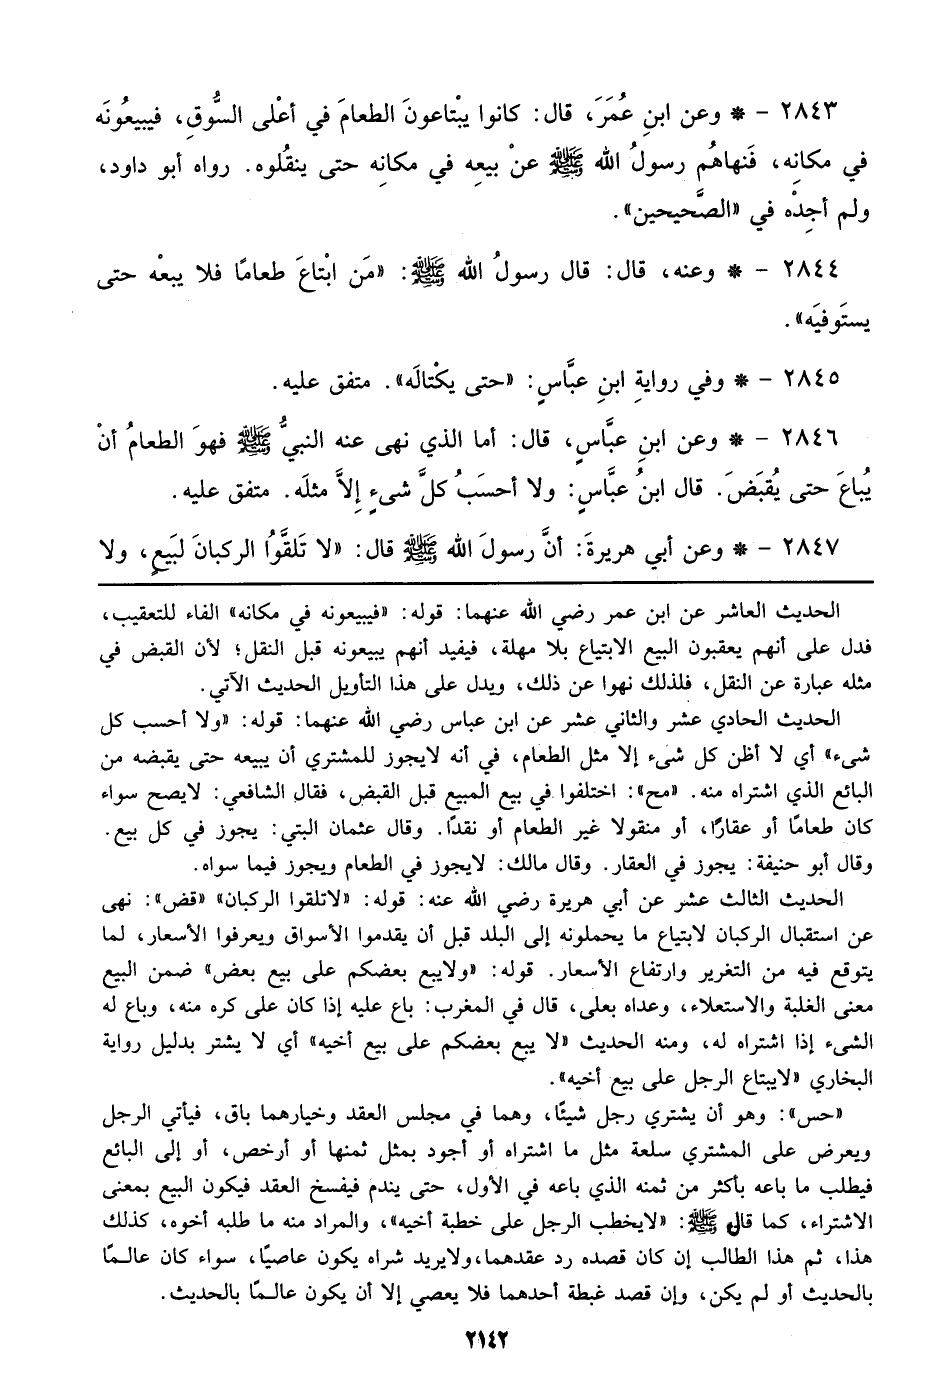 ٢٨٤٣ – * وعن ابنِ عُمَرَ، قال: كانوا يبْتاعونَ الطعامَ في أعْلى السُّوقِ، فيبيعُونَه
في مكانِه، فَنهاهُم رسولُ الله ﷺ عنْ بيعِه في مكانِه حتى ينقُلوه. رواه أبو داود،
ولم أجِدْه في «الصَّحيحين».
٢٨٤٤ – * وعنه، قال: قال رسولُ الله ﷺ: «مَن ابْتاعَ طعامًا فلا يبعْه حتى
يستَوفيَه».
٢٨٤٥ – * وفي روايةِ ابنِ عبَّاسٍ: «حتى يكْتالَه». متفق عليه.
٢٨٤٦ – * وعن ابنِ عبَّاسٍ، قال: أما الذي نهى عنه النبيُّ ﷺ فهوَ الطعامُ أنْ
يُباعَ حتى يُقبَضَ. قال ابنُ عبَّاسٍ: ولا أحسَبُ كلَّ شىءٍ إلاَّ مثلَه. متفق عليه.
٢٨٤٧ – * وعن أبي هريرةَ: أنَّ رسولَ الله ﷺ قال: «لا تَلقَّوُا الركبانَ لبَيعٍ، ولا
الحديث العاشر عن ابن عمر رضي الله عنهما: قوله: «فيبيعونه في مكانه» الفاء للتعقيب،
فدل على أنهم يعقبون البيع الابتياع بلا مهلة، فيفيد أنهم يبيعونه قبل النقل؛ لأن القبض في
مثله عبارة عن النقل، فلذلك نهوا عن ذلك، ويدل على هذا التأويل الحديث الآتي.
الحديث الحادي عشر والثاني عشر عن ابن عباس رضي الله عنهما: قوله: «ولا أحسب كل
شىء» أي لا أظن كل شىء إلا مثل الطعام، في أنه لايجوز للمشتري أن يبيعه حتى يقبضه من
البائع الذي اشتراه منه. «مح»: اختلفوا في بيع المبيع قبل القبض، فقال الشافعي: لايصح سواء
كان طعامًا أو عقارًا، أو منقولا غير الطعام أو نقدًا. وقال عثمان البتي: يجوز في كل بيع.
وقال أبو حنيفة: يجوز في العقار. وقال مالك: لايجوز في الطعام ويجوز فيما سواه.
الحديث الثالث عشر عن أبي هريرة رضي الله عنه: قوله: «لاتلقوا الركبان» «قض»: نهى
عن استقبال الركبان لابتياع ما يحملونه إلى البلد قبل أن يقدموا الأسواق ويعرفوا الأسعار، لما
يتوقع فيه من التغرير وارتفاع الأسعار. قوله: «ولايبع بعضكم على بيع بعض» ضمن البيع
معنى الغلبة والاستعلاء، وعداه بعلى، قال في المغرب: باع عليه إذا كان على كره منه، وباع له
الشىء إذا اشتراه له، ومنه الحديث «لا يبع بعضكم على بيع أخيه» أي لا يشتر بدليل رواية
البخاري «لايبتاع الرجل على بيع أخيه».
«حس»: وهو أن يشتري رجل شيئًا، وهما في مجلس العقد وخيارهما باق، فيأتي الرجل
ويعرض على المشتري سلعة مثل ما اشتراه أو أجود بمثل ثمنها أو أرخص، أو إلى البائع
فيطلب ما باعه بأكثر من ثمنه الذي باعه في الأول، حتى يندم فيفسخ العقد فيكون البيع بمعنى
الاشتراء، كما قال ﷺ: «لايخطب الرجل على خطبة أخيه»، والمراد منه ما طلبه أخوه، كذلك
هذا، ثم هذا الطالب إن كان قصده رد عقدهما،ولايريد شراه يكون عاصيًا، سواء كان عالـمًا
بالحديث أو لم يكن، وإن قصد غبطة أحدهما فلا يعصي إلا أن يكون عالـمًا بالحديث.
٢١٤٢